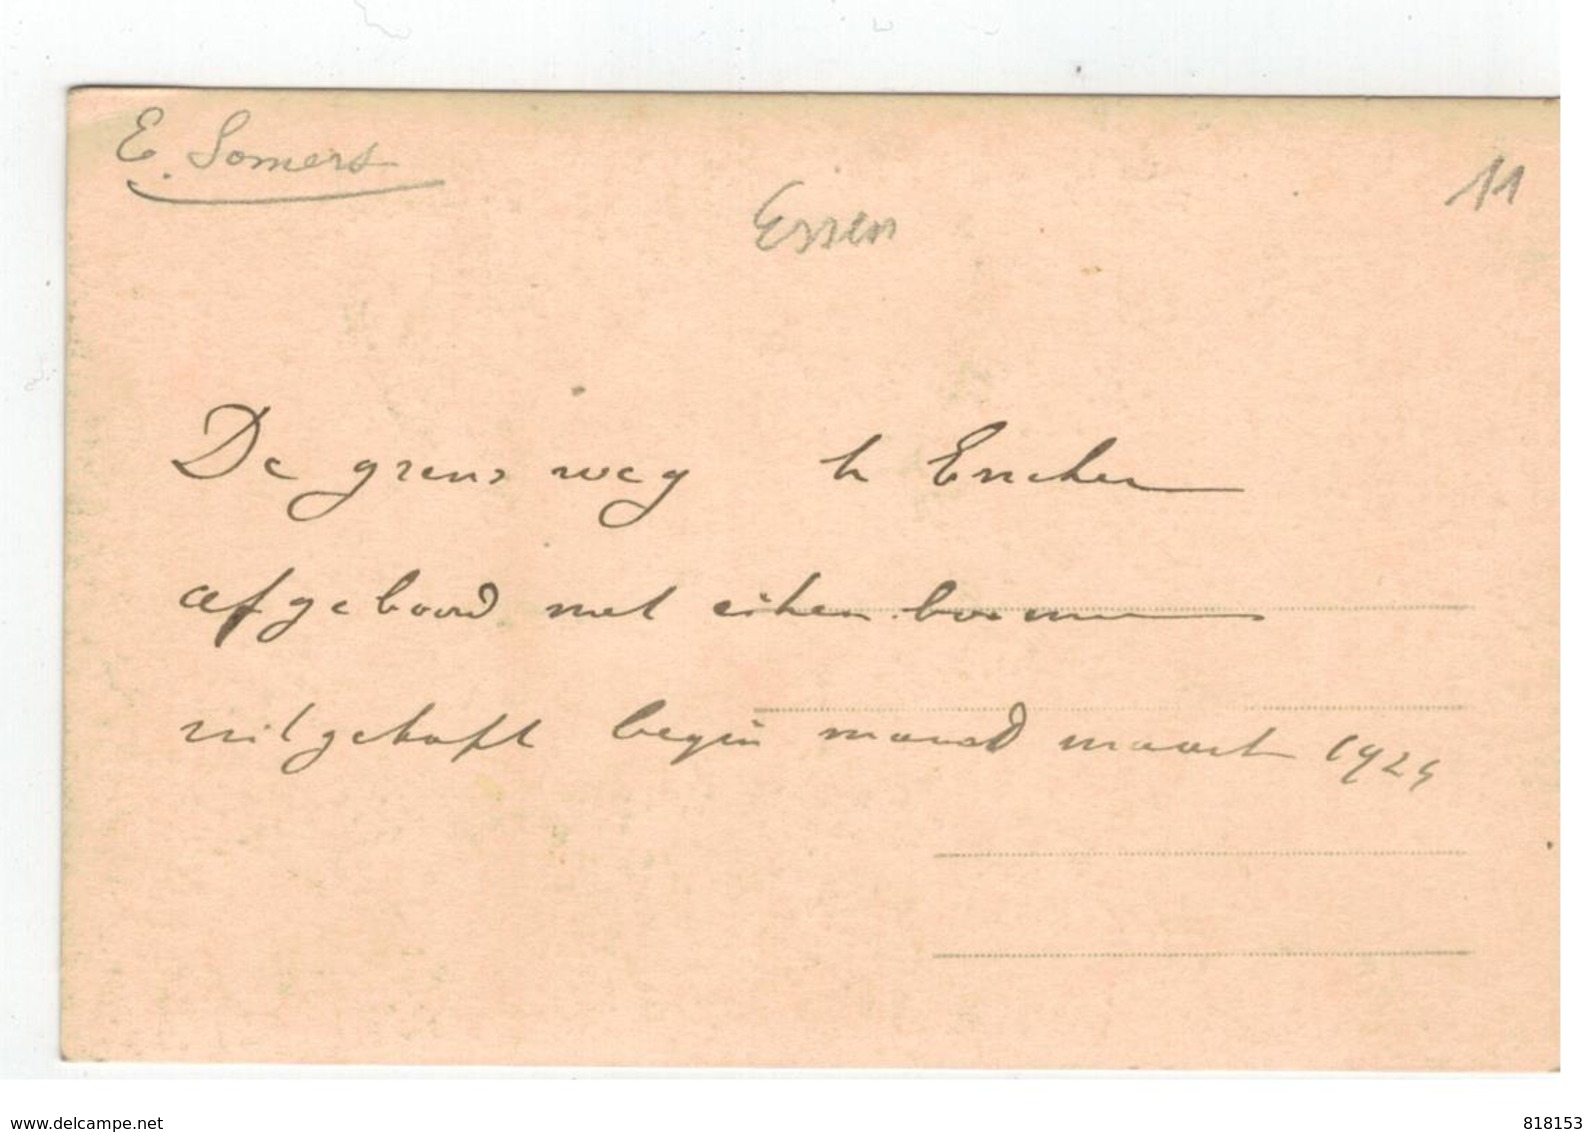 E. Somers
Essen
11
De grens weg te
afgeboord met eiken boomen
uitgekapt begin maand maart 1924
www.delcampe.net
818153